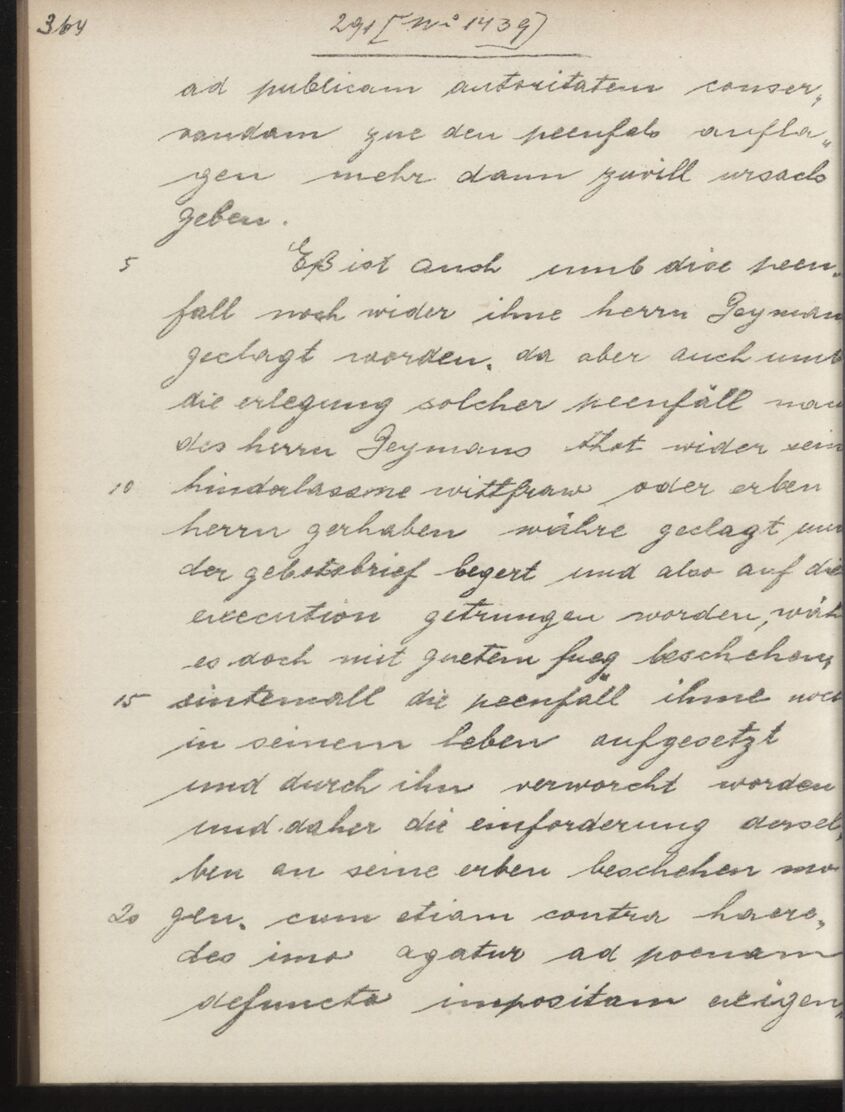 364 291 [No 1439]
ad publicam autoritatem conser„
vandam zue den peenfals aufla„
gen mehr dann zuvill ursach
geben.
5 Eß ist auch umb dise peen„
fall noch wider ihne herrn Geyman
geclagt worden. da aber auch umb
die erlegung solcher peenfäll nach
des herrn Geymans thot wider sein
10 hinderlassne wittfraw oder erben
herrn gerhaben währe geclagt und
der gebotsbrief begert und also auf die
execution getrungen worden, wäh
es doch mit guetem fueg beschehen,
15 sintemall die peenfäll ihme noch
in seinem leben aufgesetzt
und durch ihn verworcht worden
und daher die einforderung dersel„
ben an seine erben beschehen mö
20 gen. cum etiam contra haere„
des imo agatur ad poenam
defuncto impositam exigen„